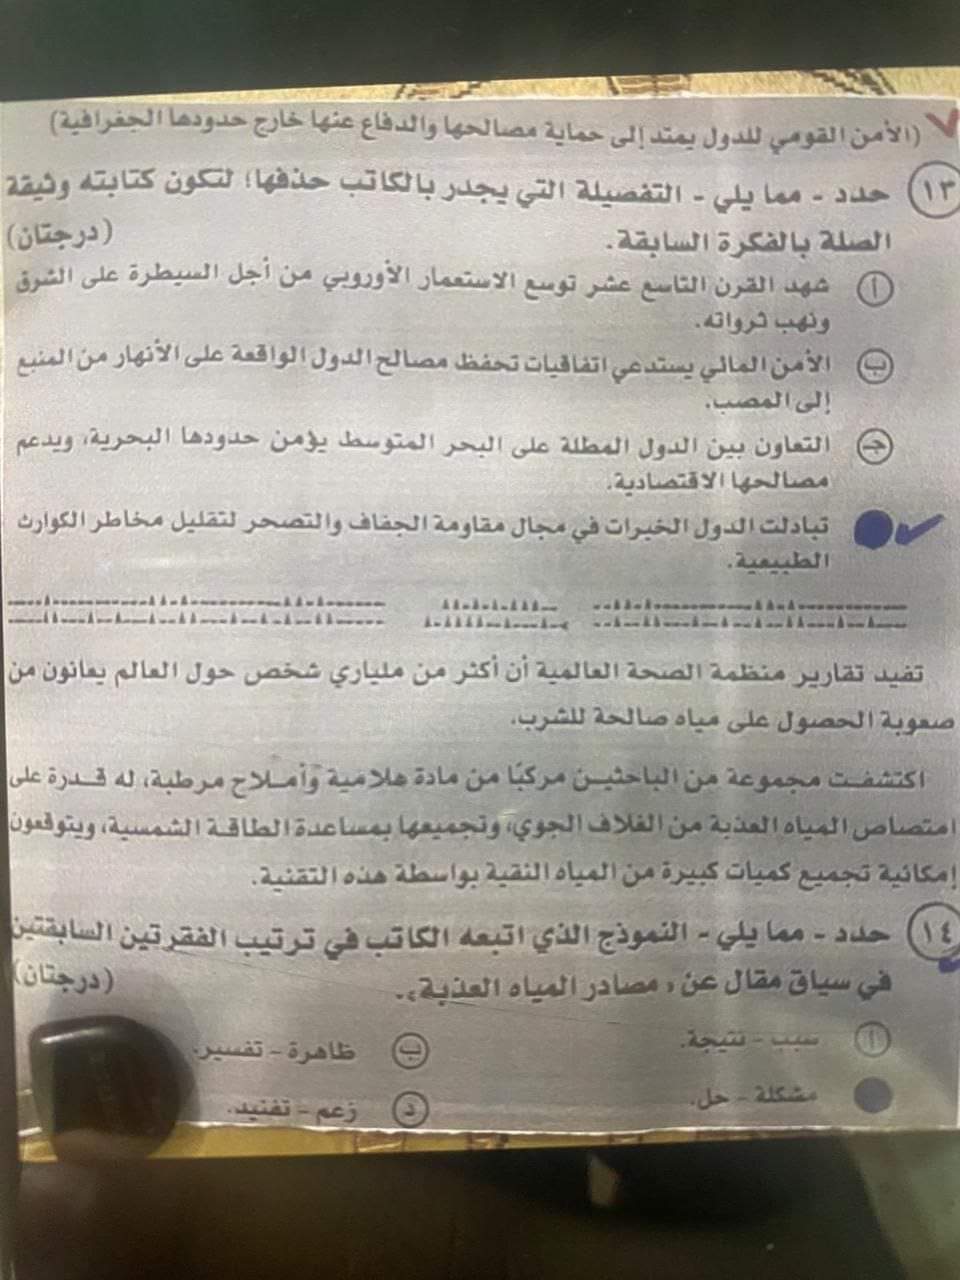 (الأمن القومي للدول يمتد إلى حماية مصالحها والدفاع عنها خارج حدودها الجغرافية)
١٣ حدد - مما يلي - التفصيلة التي يجدر بالكاتب حذفها؛ لتكون كتابته وثيقة
الصلة بالفكرة السابقة. (درجتان)
أ شهد القرن التاسع عشر توسع الاستعمار الأوروبي من أجل السيطرة على الشرق
ونهب ثرواته.
ب الأمن المائي يستدعي اتفاقيات تحفظ مصالح الدول الواقعة على الأنهار من المنبع
إلى المصب.
جـ التعاون بين الدول المطلة على البحر المتوسط يؤمن حدودها البحرية، ويدعم
مصالحها الاقتصادية.
تبادلت الدول الخبرات في مجال مقاومة الجفاف والتصحر لتقليل مخاطر الكوارث
الطبيعية.
تفيد تقارير منظمة الصحة العالمية أن أكثر من ملياري شخص حول العالم يعانون من
صعوبة الحصول على مياه صالحة للشرب.
اكتشفت مجموعة من الباحثين مركبًا من مادة هلامية وأملاح مرطبة، له قدرة على
امتصاص المياه العذبة من الغلاف الجوي، وتجميعها بمساعدة الطاقة الشمسية، ويتوقعون
إمكانية تجميع كميات كبيرة من المياه النقية بواسطة هذه التقنية.
١٤ حدد - مما يلي - النموذج الذي اتبعه الكاتب في ترتيب الفقرتين السابقتين
في سياق مقال عن «مصادر المياه العذبة». (درجتان)
أ سبب - نتيجة. ب ظاهرة - تفسير.
مشكلة - حل. د زعم - تفنيد.